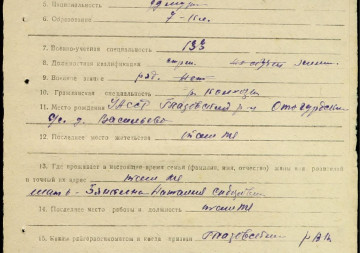 5. Национальность удмурт
6. Образование 7-кл.
7. Военно-учетная специальность 133
8. Должностная квалификация стрел.
9. Военное звание ряд.
10. Гражданская специальность
11. Место рождения УАССР Глазовский р-н
д. Васильево
12. Последнее место жительства там же
13. Где проживает в настоящее время семья (фамилия, имя, отчество) жены или родителей
и точный их адрес там же
мать - Наталия
14. Последнее место работы и должность там же
15. Каким райвоенкоматом и когда призван Глазовским РВК